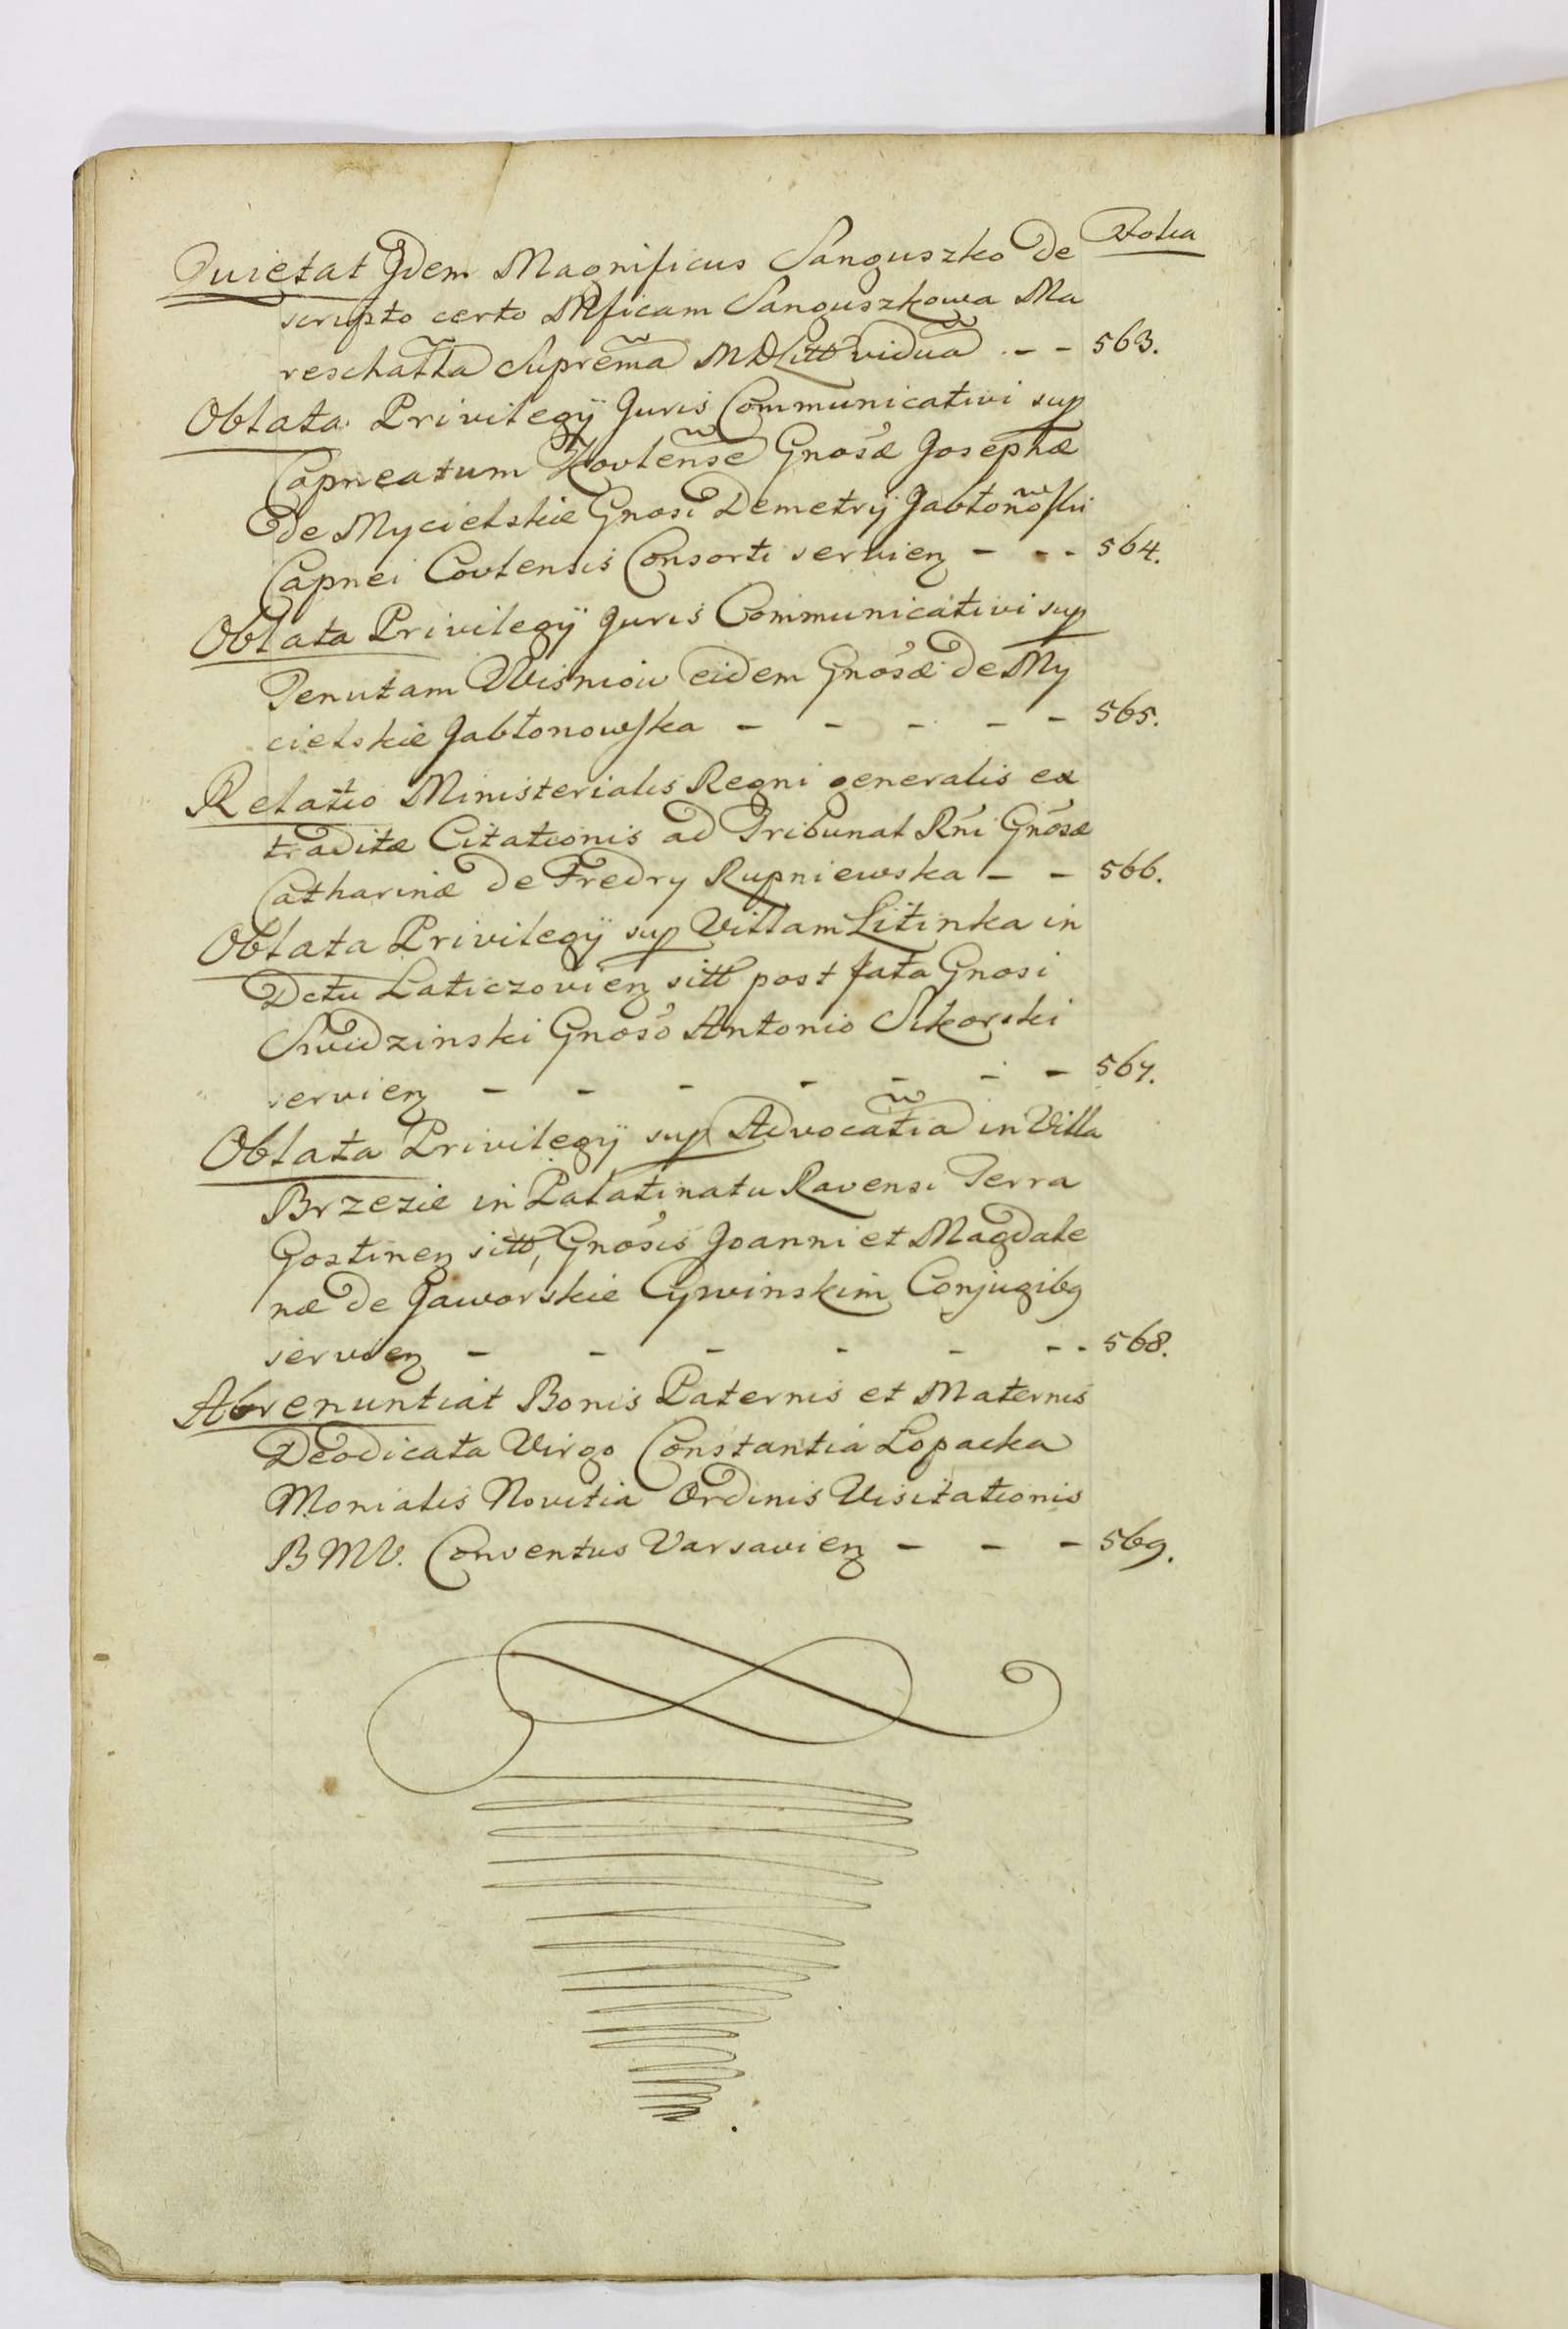 Folia
Quietat Idem Magnificus Sanguszko de
scripto certo Mficam Sanguszkowa Ma
reschalla Suprema MDLitt vidua - - 563.
Oblata Privilegÿ Juris Communicativi sup
Capneatum Kovlense Gnosæ Josephæ
de Mycielskie Gnosi Demetrÿ Jabłonoski
Capnei Covlensis Consorti servien - - - 564.
Oblata Privilegÿ Juris Communicativi sup
Tenutam Wisniow eidem Gnosæ de My
cielskie Jabłonowska - - - - - 565.
Relatio Ministerialis Regni generalis ex
traditæ Citationis ad Tribunal Rni Gnosæ
Catharinæ de Fredry Rupniewska - - 566.
Oblata Privilegÿ sup Villam Litinka in
Dctu Laticzovien sitt post fata Gnosi
Swidzinski Gnoso Antonio Sikorski
servien - - - - - - - 567.
Oblata Privilegÿ sup Advocatia in Villa
Brzezie in Palatinatu Ravensi Terra
Gostinen sitt, Gnosis Joanni et Magdale
næ de Jaworskie Cywinskim Conjugibq
servien - - - - - - - 568.
Abrenuntiat Bonis Paternis et Maternis
Deodicata Virgo Constantia Lopacka
Monialis Novitia Ordinis Visitationis
BMV. Conventus Varsavien - - - 569.